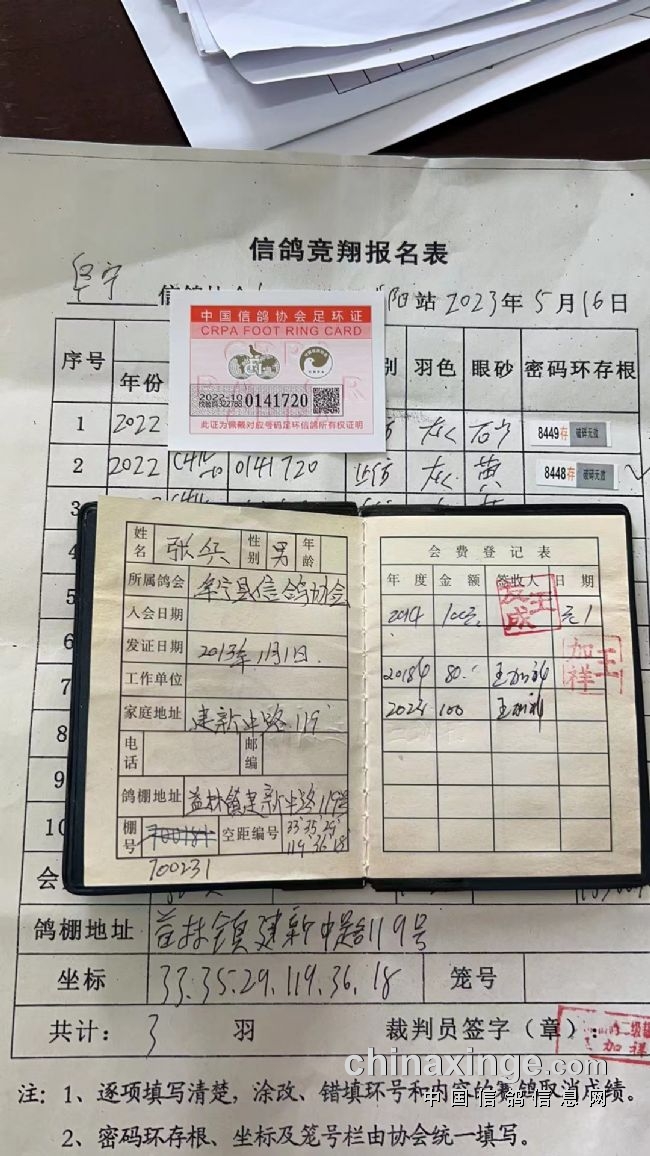 信鸽竞翔报名表
阜宁
站 2023年5月16日
序号
年份
羽色
眼砂
密码环存根
中国信鸽协会足环证
CRPA FOOT RING CARD
2022-10
0141720
此证为佩戴对应号码足环信鸽所有权证明
1
2022
灰
8449存
破碎无效
2
2022
0141720
灰
黄
8448存
破碎无效
3
4
5
6
7
8
9
10
姓名
张兵
性别
男
年龄
所属鸽会
阜宁县信鸽协会
入会日期
发证日期
2013年1月1日.
工作单位
家庭地址
建新中路119
电话
邮编
鸽棚地址
益林镇建新中路119号
棚号
空距编号
33°35'29"
119°36'18"
700231
会费登记表
年度
金额
签收人
日期
2014
100元
2018年
80.
王加祥
100
王加祥
王加祥
会
鸽棚地址
益林镇建新中路119号
坐标
33.35.29.119.36.18
笼号
共计:
3
羽
裁判员签字(章):
二级裁
加祥
注:1、逐项填写清楚,涂改、错填环号和内容的赛鸽取消成绩。
2、密码环存根、坐标及笼号栏由协会统一填写。
chinaxinge.com
中国信鸽信息网